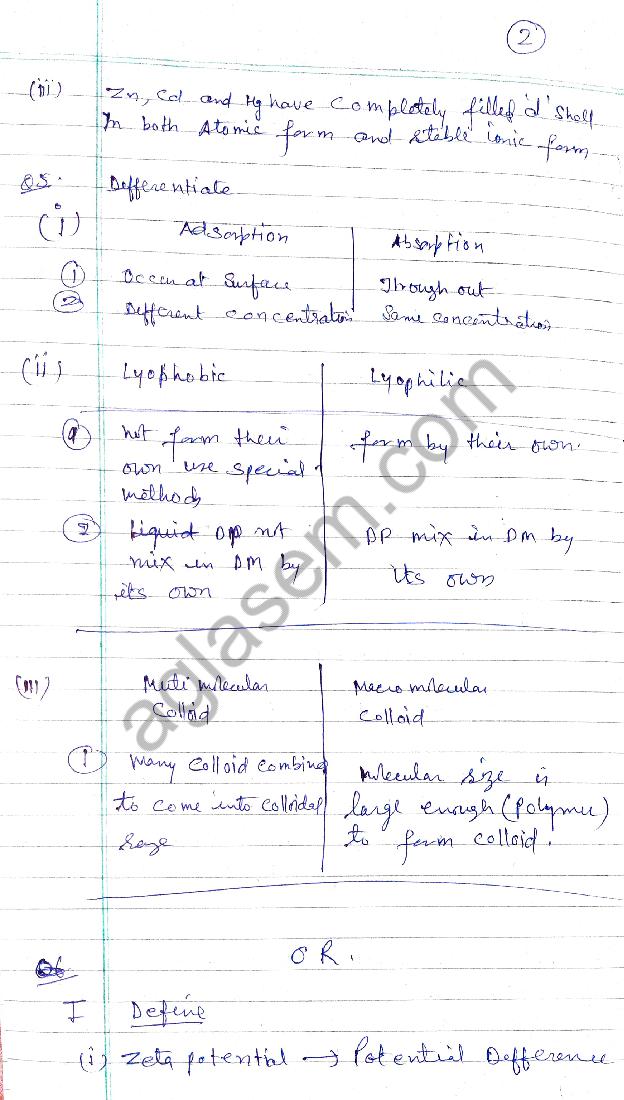 2
(iii) Zn, Cd and Hg have Completely filled 'd' Shell
In both Atomic form and stable ionic form
Q5. Differentiate
(i) Adsorption Absorption
① Occur at Surface Through out
② Different concentration Same concentration
(ii) Lyophobic Lyophilic
① Not form their form by their own.
own use special
methods
② Liquid DP not DP mix in DM by
mix in DM by its own
its own
(iii) Multi molecular Macro molecular
Colloid Colloid
① Many Colloid combine Molecular size is
to come into colloidal large enough (Polymer)
range to form colloid.
OR.
Q6
I Define
(i) Zeta potential → Potential Difference
aglasem.com